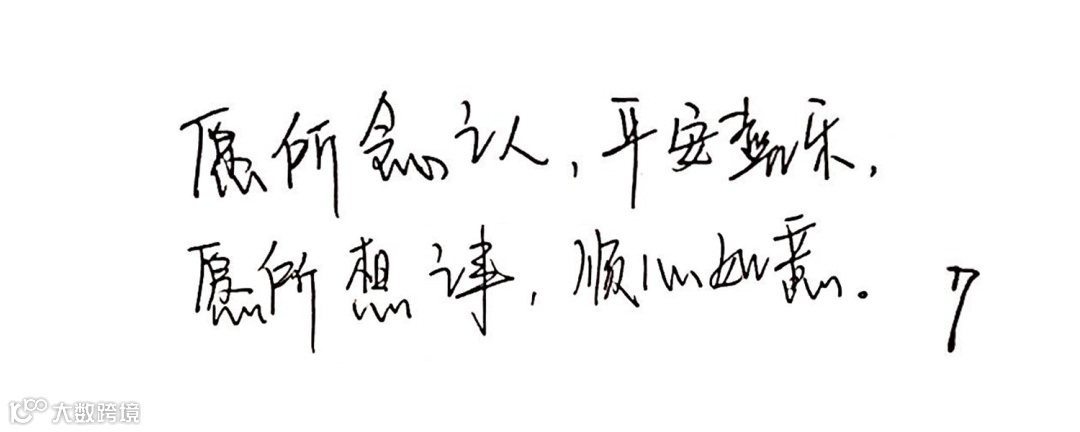 愿所念之人,平安喜乐,
愿所想之事,顺心如意。
7
大数跨境